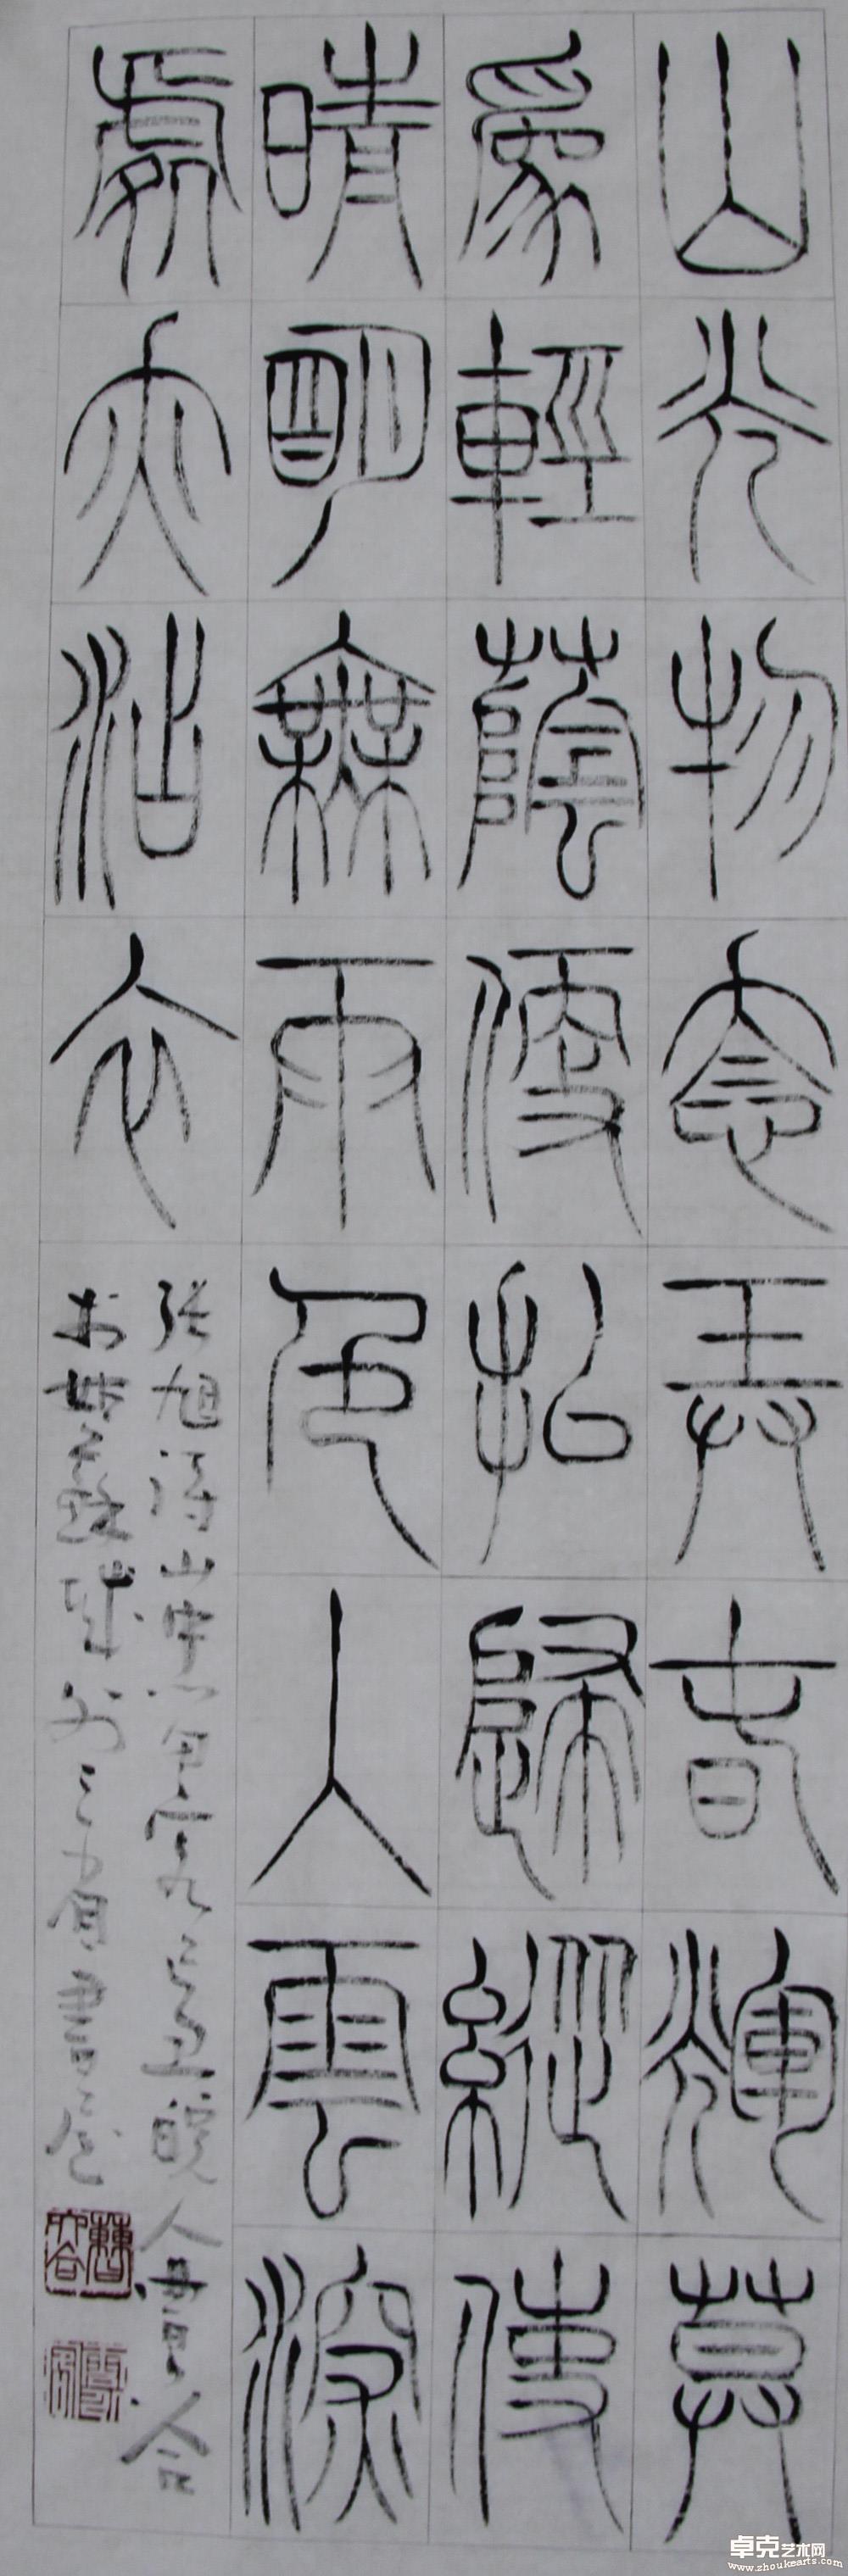 山光物态弄春輝莫
為輕蔭便擬歸縱使
晴明無雨色入雲深
處亦沾衣
张旭诗山中留客己丑
書
卓克艺术网
www.zhoukearts.com